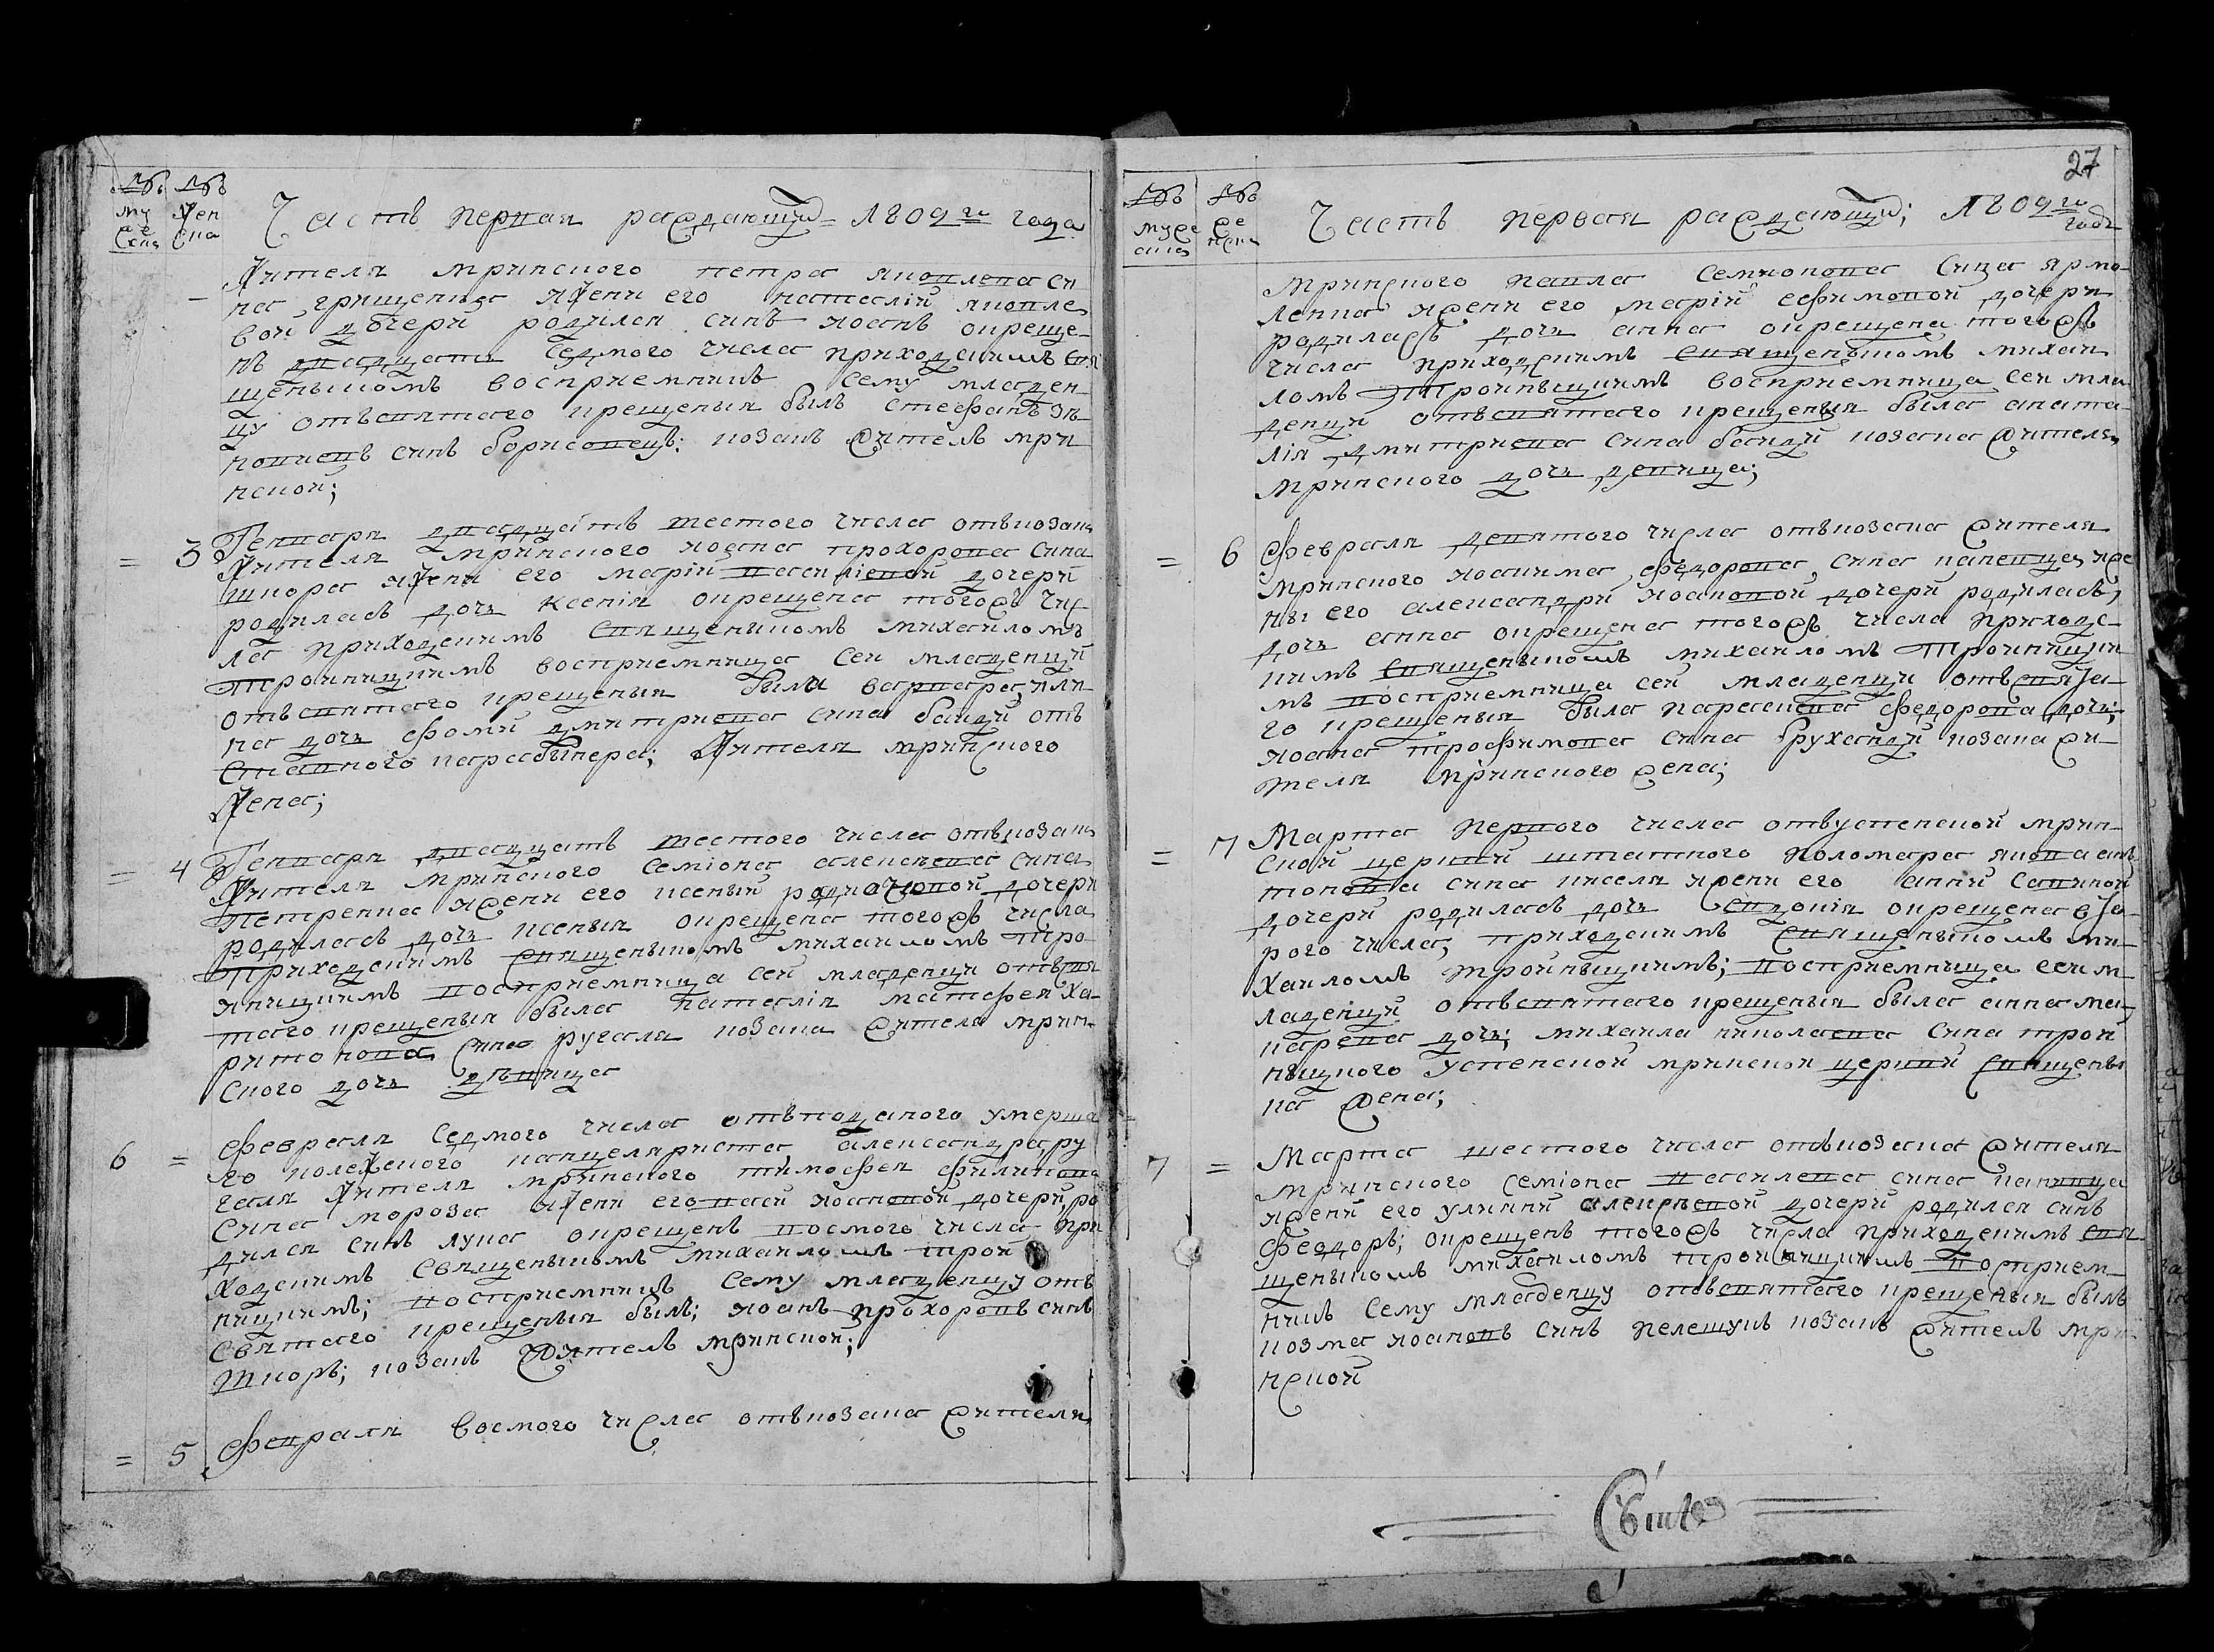 му же ска
жен ска
Часть первая раждающихъ 1809го года
жителя мринского петра яковлева си
на грищенка жени его наталій яковле
вой дочери родился синъ иоанъ окреще
нъ двадцать седмого числа приходскимъ свя
щенникомъ восприемникъ сему младен
цу отъ святаго крещения былъ стефанъ
синъ борисовецъ: козакъ житель мри
нской;
= 3 Генваря двадцать шестого числа отъ козака
жителя мринского иоана прохорова сина
шкора жени его марій василіевой дочери
родилась дочь ксения окрещена тогожъ чис
ла приходскимъ священникомъ михаиломъ
тройницкимъ восприемница сей младенци
отъ святаго крещения была
на дочь фоми дмитриева сина
жителя мринского
жена;
= 4 Генваря двадцать шестого числа отъ козака
жителя мринского семіона алексеева сина
петренка жени его ксении родионовой дочери
родилась дочь ксения окрещена тогожъ числа
приходскимъ священникомъ михаиломъ тро
яницкимъ восприемница сей младенци отъ свя
таго крещения была наталія матфея ха
ритонова сина ругаля козака жителя мрин
ского дочь дѣвица
6 = Февраля седмого числа отъ поданого умерша
го колежского канцеляриста александра ру
галя жителя мринского тимофея филипова
сина мороза жени его васи иоановой дочери, ро
дился синъ лука окрещенъ восмого числа при
ходскимъ священникомъ михаиломъ трой
ницкимъ; восприемникъ сему младенцу отъ
святаго крещения былъ; иоанъ прохоровъ синъ
шкоръ; козакъ житель мринской;
= 5 Февраля восмого числа отъ козака жителя
27
муже ска
же нска
Часть первая раждающих; 1809го года
мринского павла семионова сина ярмо
ленка жени его марій ефимовой дочери
родилась дочь анна окрещена тогожъ
числа приходскимъ священникомъ михаи
ломъ Тройницкимъ восприемница сей мла
денци отъ святаго крещения была ната
лія дмитриева сина козака жителя
мринского дочь девица;
= 6 Февраля девятого числа отъ козака жителя
мринского иоакима федорова, сина же
ни его александри иоановой дочери родилась,
дочь анна окрещена тогожъ числа приходс
кимъ священникомъ михаиломъ Тройницки
мъ восприемница сей младенци отъ свята
го крещения была параскева федорова дочь;
иоана трофимова сина козака жи
теля мринского жена;
= 7 Марта первого числа отъ успенской мрин
ской церкви штатного паламара
сина киселя жени его анни савиной
дочери родилась дочь евдокія окрещена вта
рого числа, приходскимъ священникомъ ми
хаиломъ тройницкимъ; восприемница сей м
ладенци отъ святаго крещения была анна ма
карева дочь; михаила николаева сина трой
ницкого успенской мринской церкви священни
ка жена;
7 = Марта шестого числа отъ козака жителя
мринского семіона василева сина
жени его улияни алексеевой дочери родился синъ
Феодоръ; окрещенъ тогожъ числа приходскимъ свя
щенникомъ михаиломъ тройницкимъ восприем
никъ сему младенцу отъ святаго крещения былъ
козма иоановъ синъ пелешукъ козакъ житель мри
нской